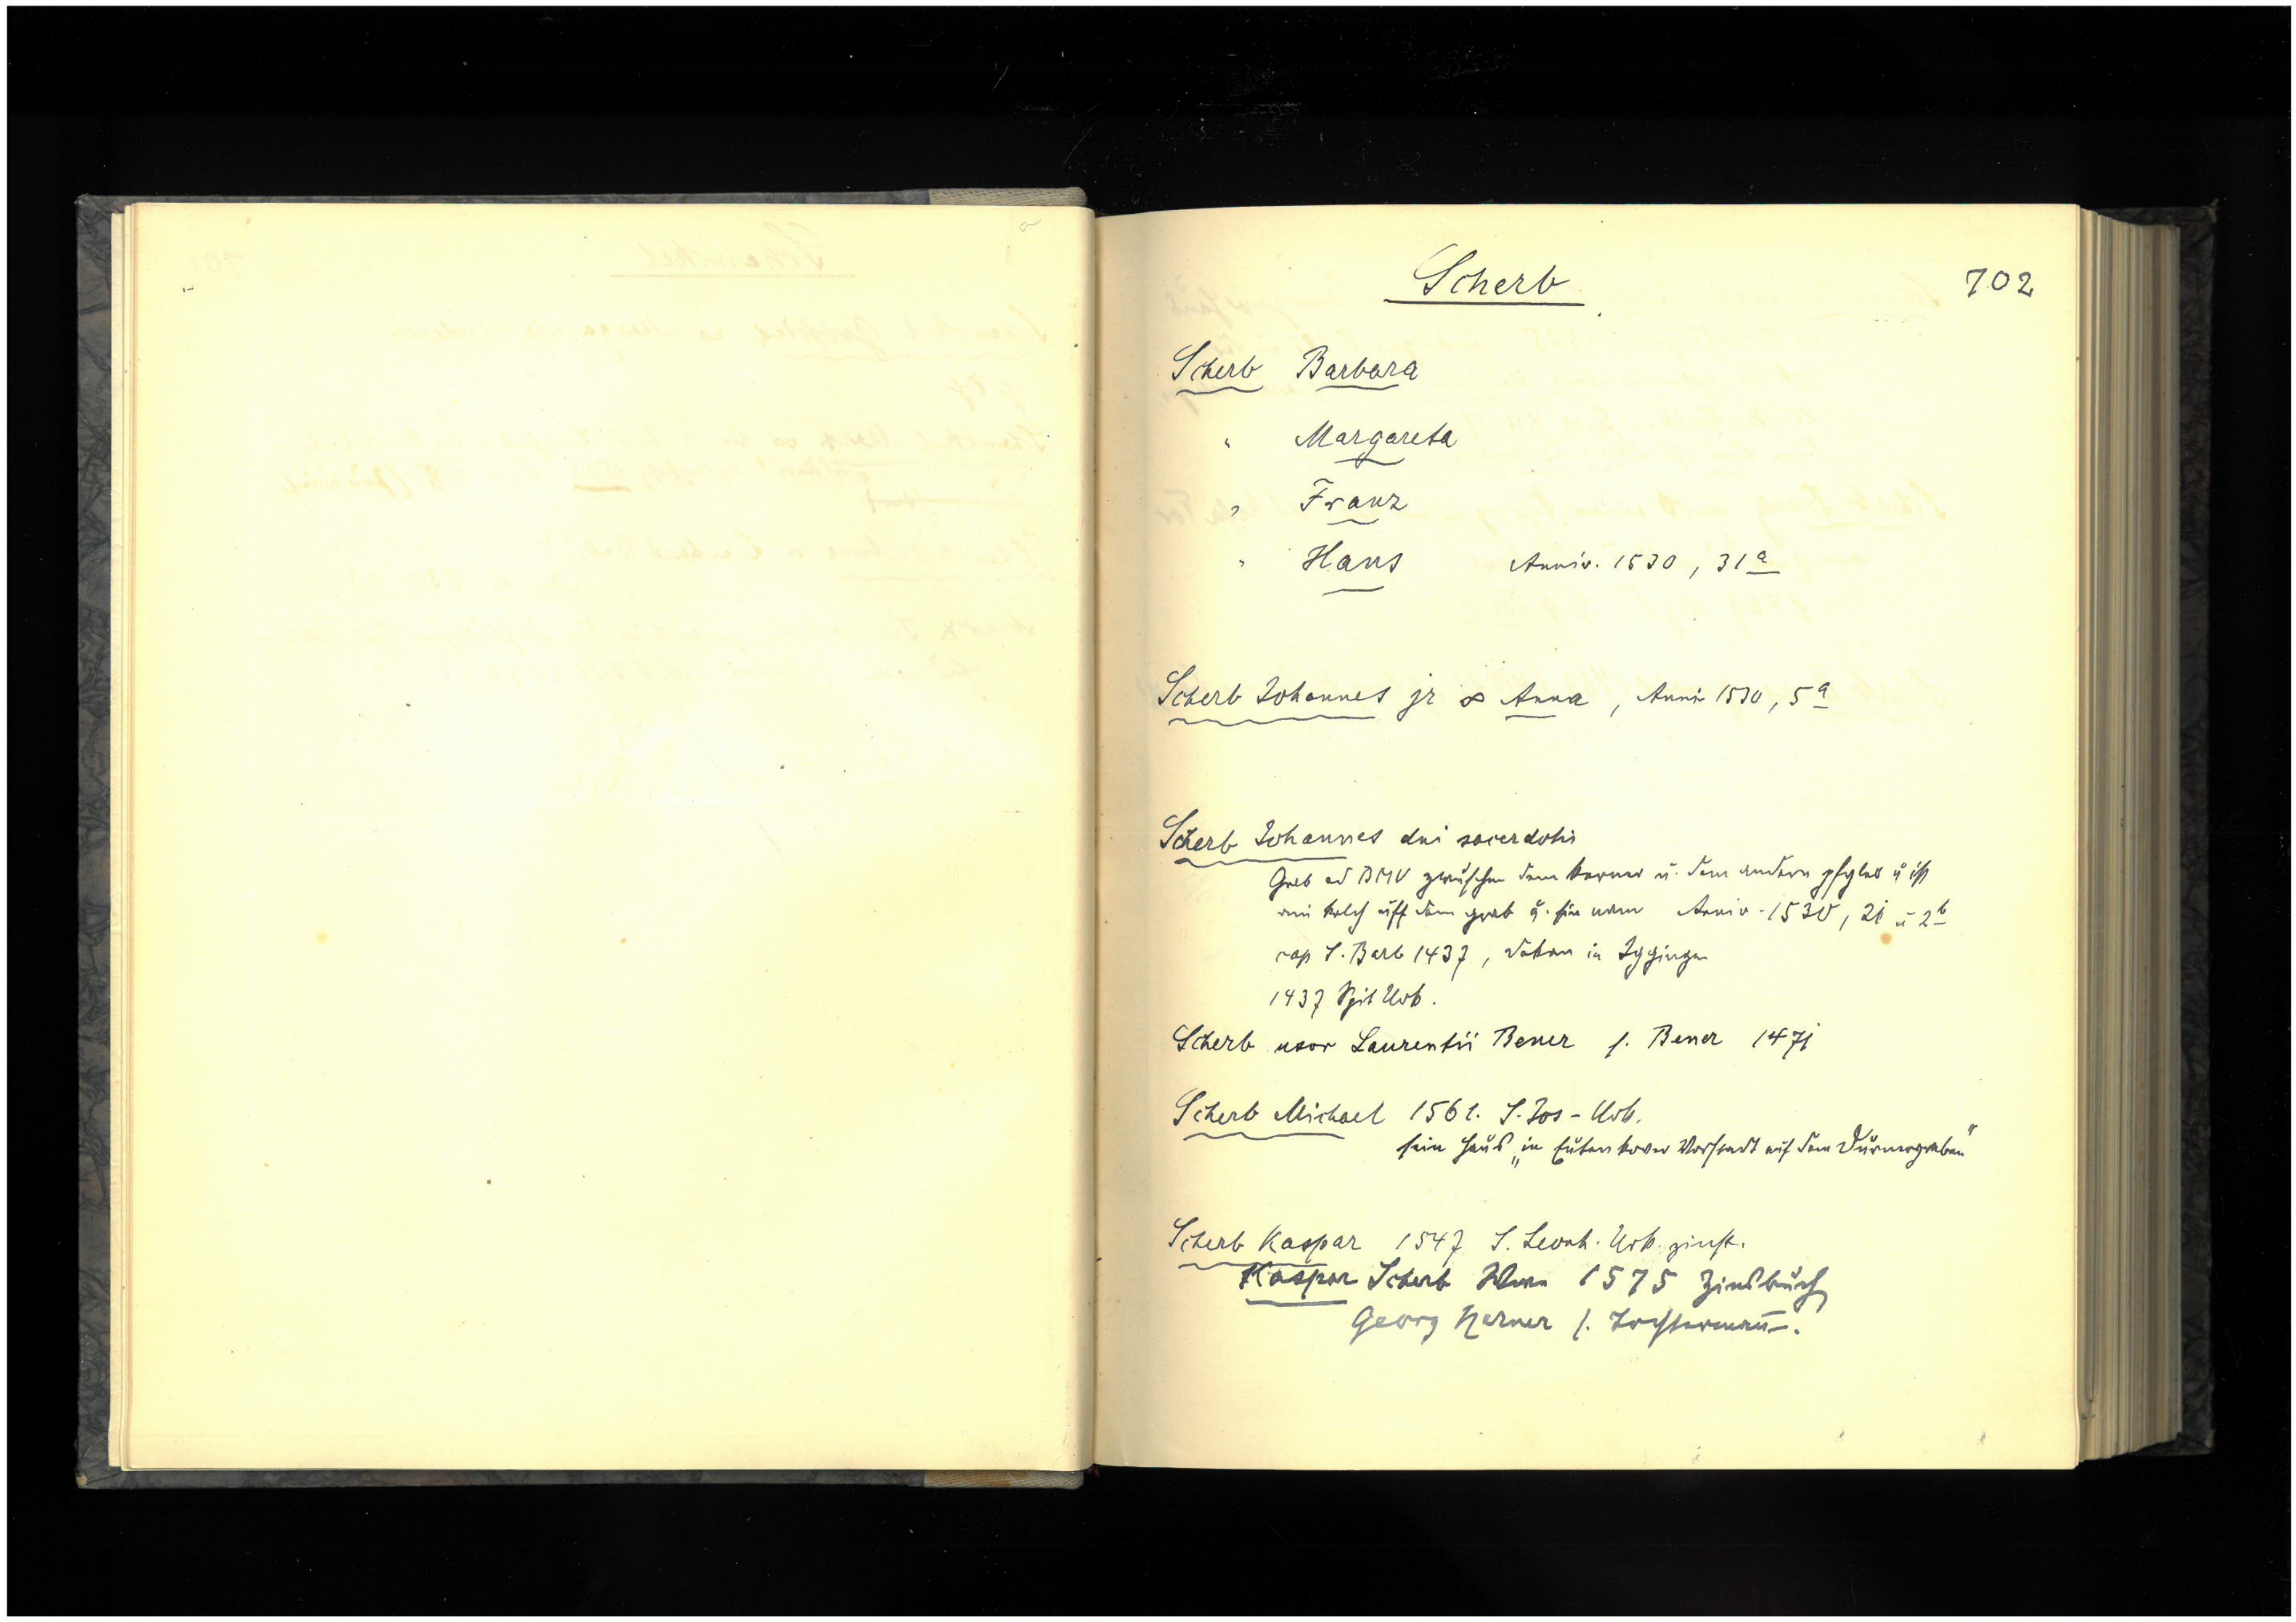 Scherb 702
Scherb Barbara
" Margareta
" Franz
" Hans Anniv. 1530, 31a
Scherb Johannes jr ∞ Anna, Anniv 1530, 5a
Scherb Johannes dni sacerdotis
Grab ad BMV zwüschen dem kerner u. dem andern pfyler u ist
ein kelch uff dem grab u. sin nam Anniv. 1530, 21 u 2b
cap S. Barb 1437, Dekan in Iggingen
1437 Spit Urb.
Scherb uxor Laurentii Bener s. Bener 1471
Scherb Michael 1561. S. Jos-Urb.
sein Haus „in Eutenkover Vorstadt auf dem Türnergraben"
Scherb Kaspar 1547 S. Leonh. Urb. zinst.
Kaspar Scherb 1575 Zinsbuch
Georg Kerner s.